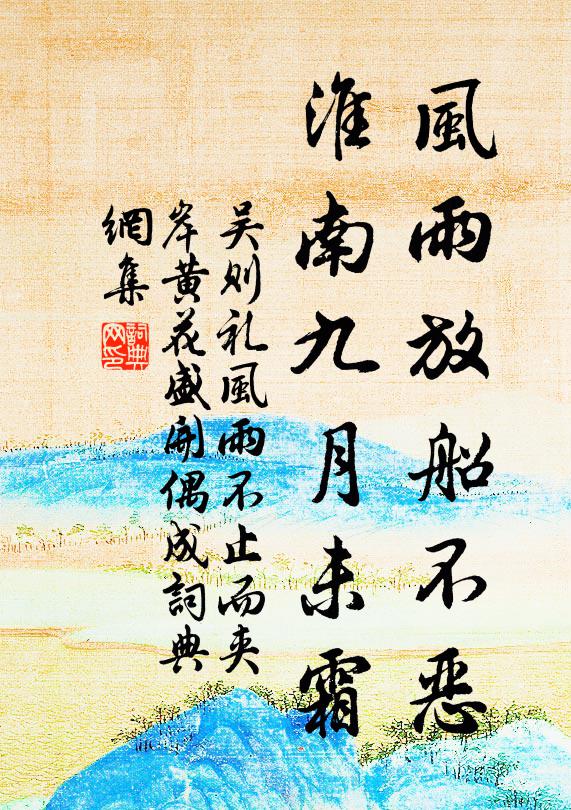 風雨放船不恶
淮南九月未霜
吴则礼風雨不止而夹
岸黄花盛開偶成詞典
網集
詞典
网印